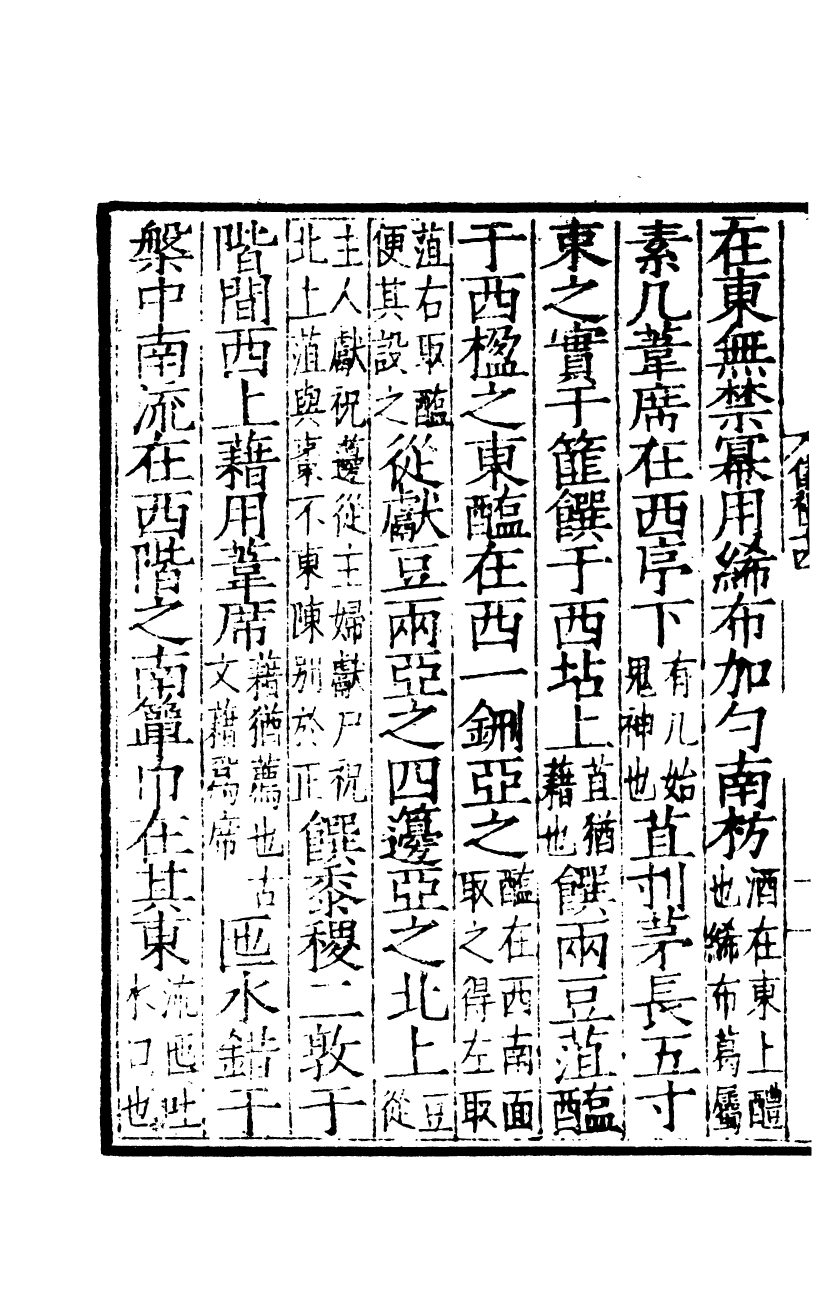 在東無禁冪用絺布加勺南枋酒在東上醴也絺布葛屬
素几葦席在西序下有几始鬼神也苴刌茅長五寸
束之實于篚饌于西坫上苴猶藉也饌兩豆菹醢
于西楹之東醢在西一鉶亞之醢在西南面取之得左取
菹右取醢便其設之從獻豆兩亞之四籩亞之北上豆從
主人獻祝籩從主婦獻尸祝北上菹與棗不東陳別於正饌黍稷二敦于
階間西上藉用葦席藉猶薦也古文藉爲席匜水錯于
槃中南流在西階之南簞巾在其東流匜吐水口也